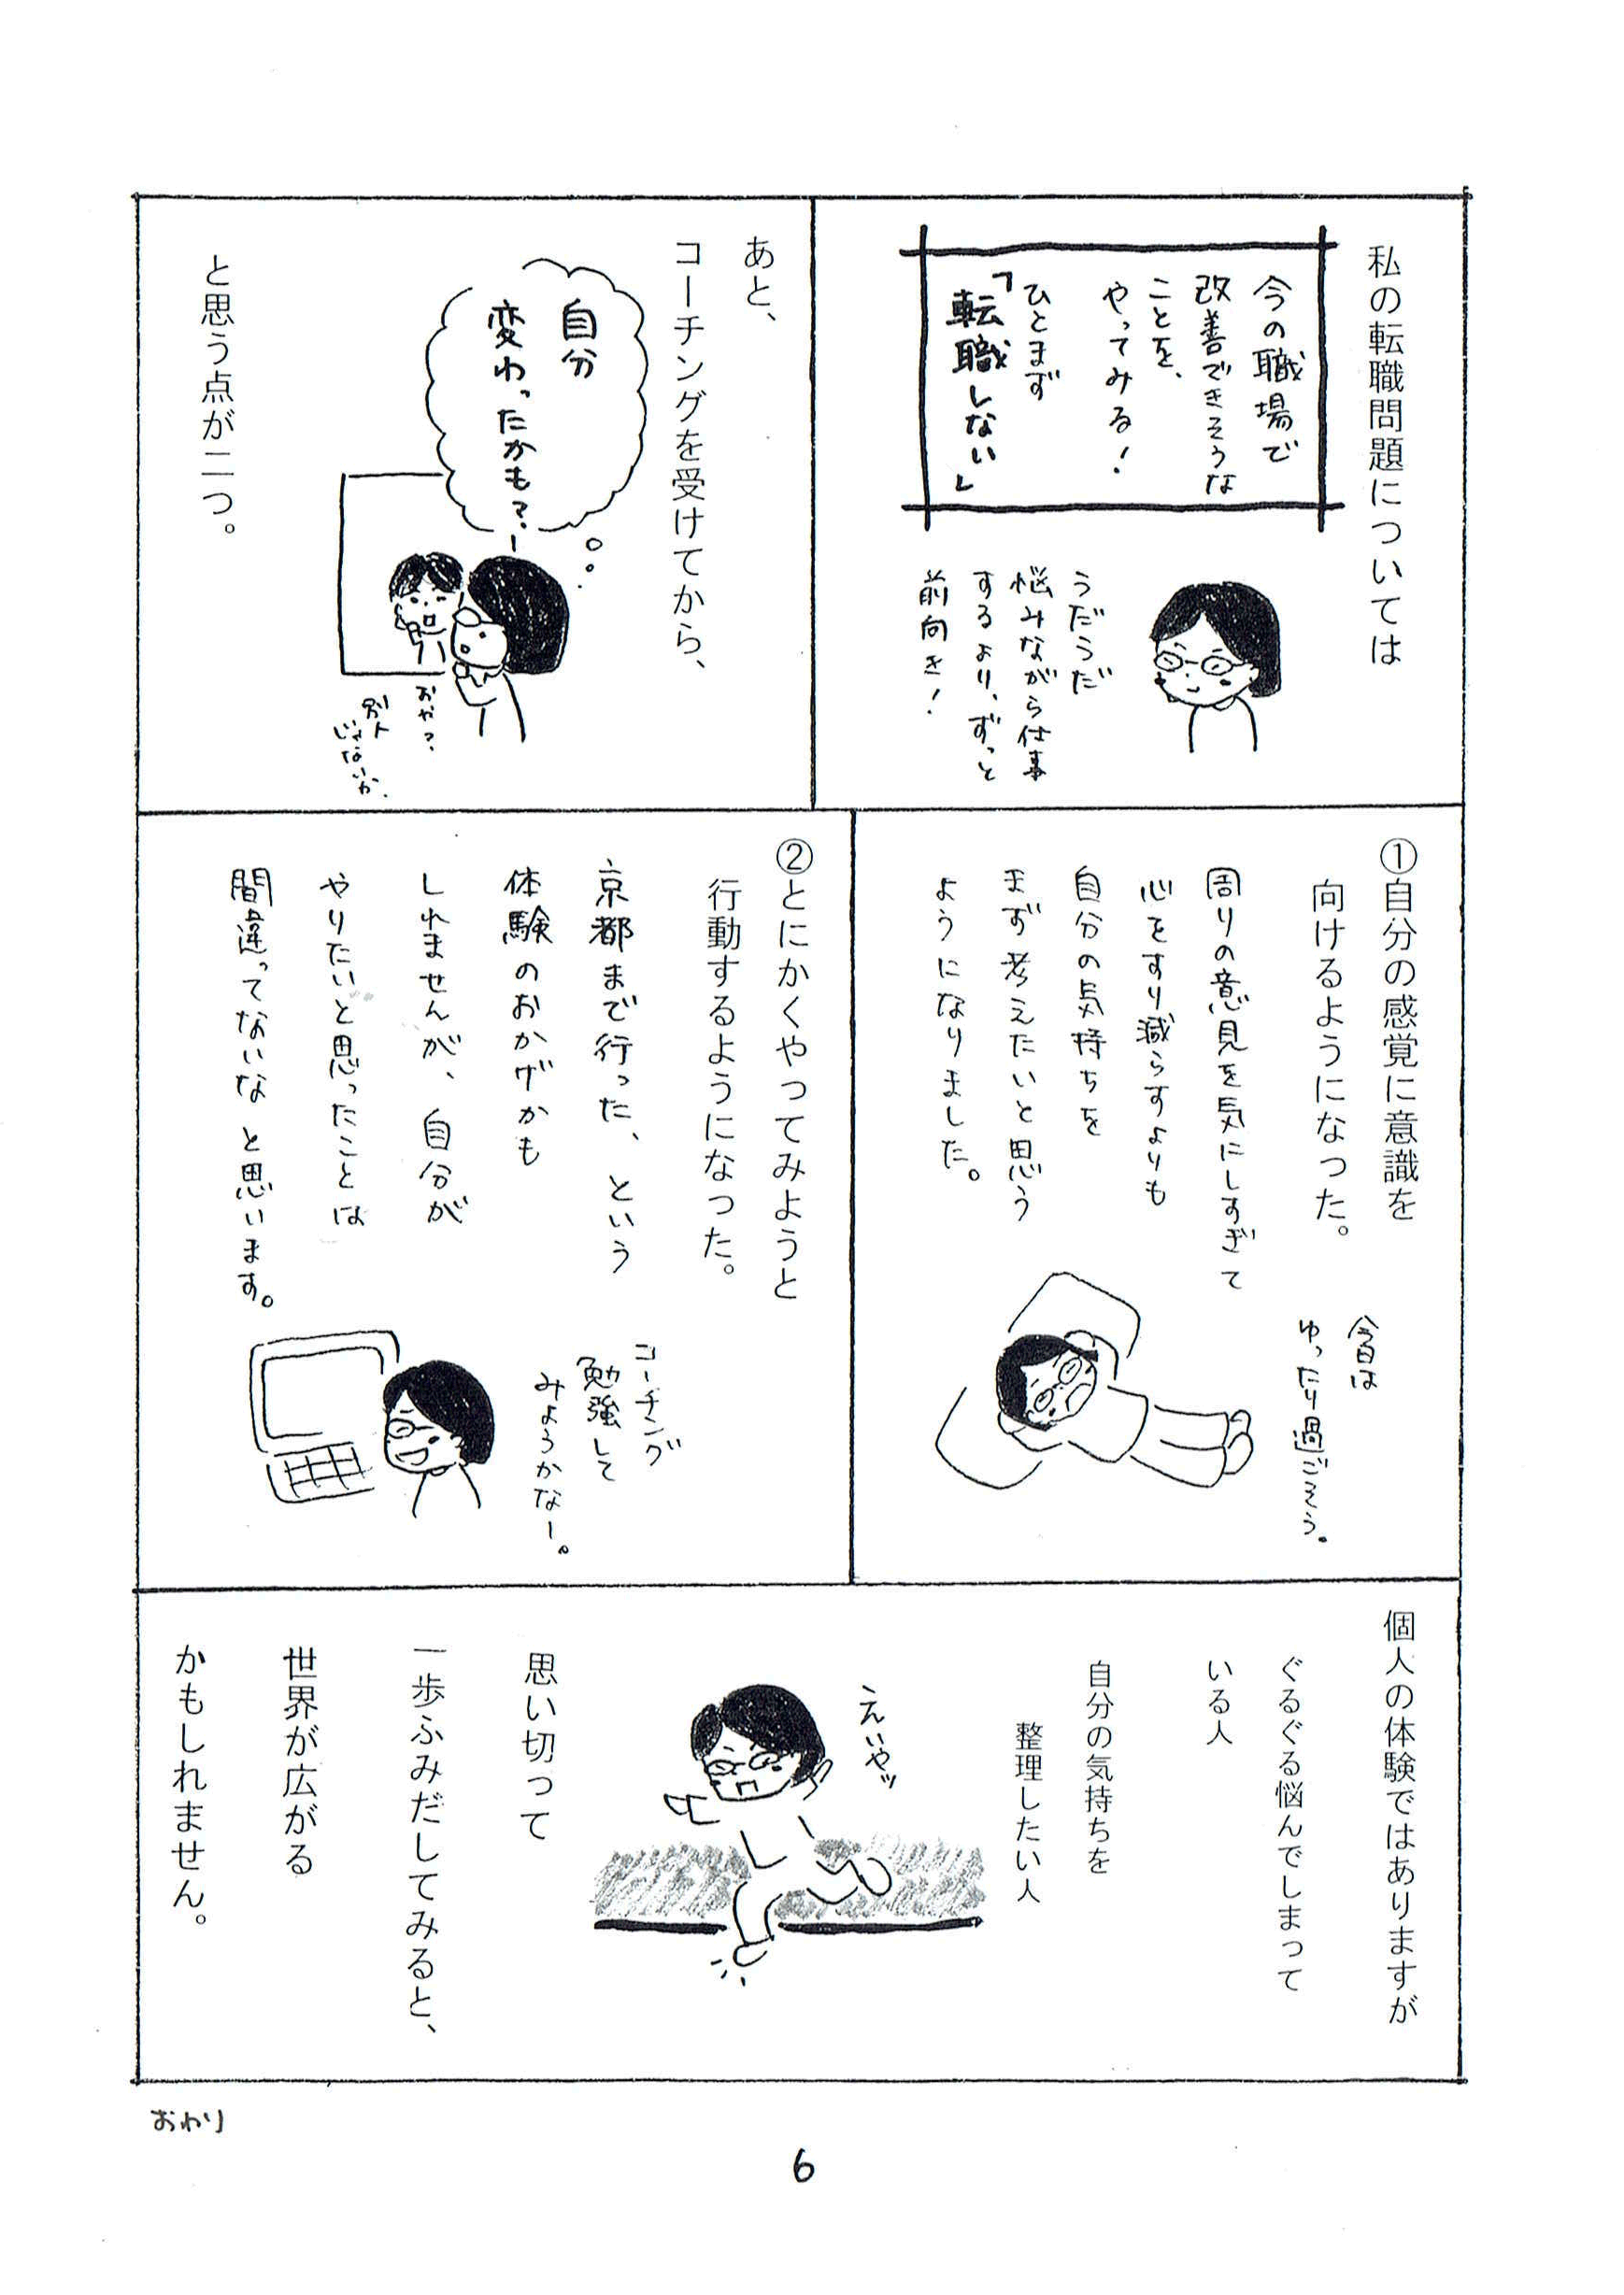 私の転職問題については
今の職場で
改善できそうな
ことを、
やってみる!
ひとまず
「転職しない」
うだうだ
悩みながら仕事
するより、ずっと
前向き!
あと、
コーチングを受けてから、
自分
変わったかも?
おや?
別人
じゃないか.
と思う点が二つ。
①自分の感覚に意識を
向けるようになった。
周りの意見を気にしすぎて
心をすり減らすよりも
自分の気持ちを
まず考えたいと思う
ようになりました。
今日は
ゆったり過ごそう。
②とにかくやってみようと
行動するようになった。
京都まで行った、という
体験のおかげかも
しれませんが、自分が
やりたいと思ったことは
間違ってないな と思います。
コーチング
勉強して
みようかなー。
個人の体験ではありますが
ぐるぐる悩んでしまって
いる人
自分の気持ちを
整理したい人
えいやッ
思い切って
一歩ふみだしてみると、
世界が広がる
かもしれません。
おわり
6